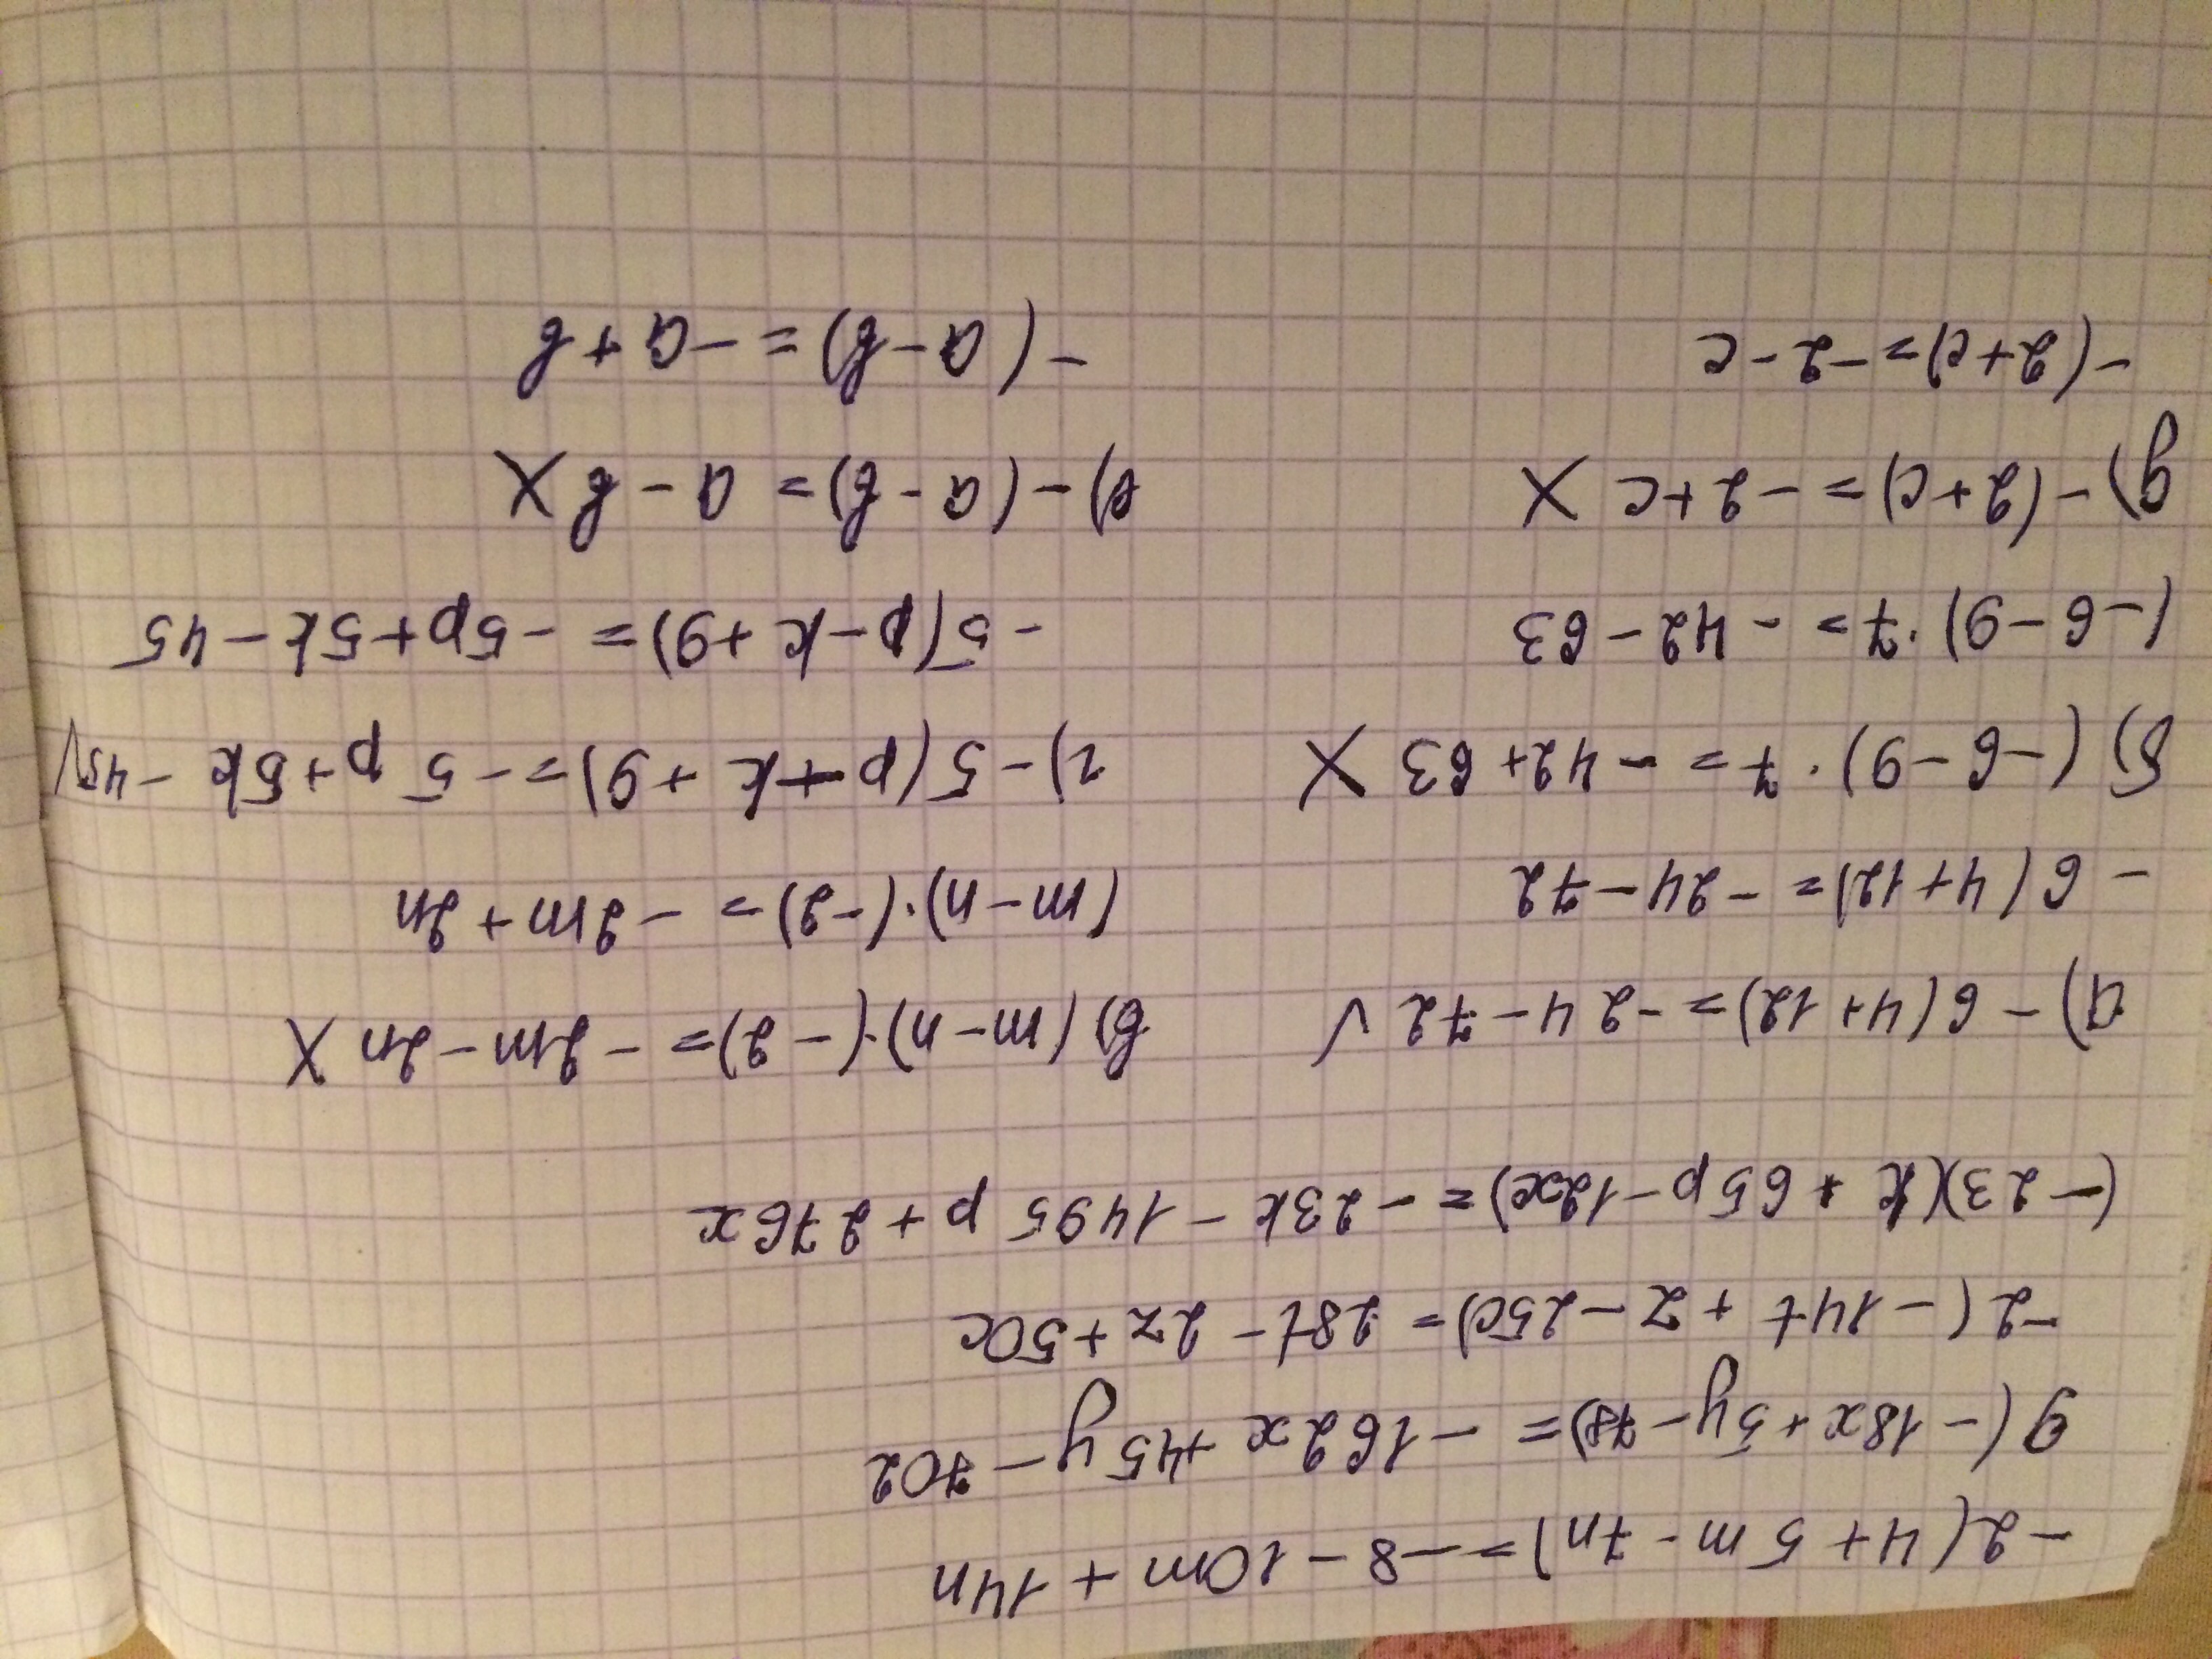 -2(4+5m-7n)=-8-10m+14n
9(-18x+5y-78)=-162x+45y-702
-2(-14t+z-25c)=28t-2z+50c
(-23)(k+65p-12x)=-23k-1495p+276x
а) -6(4+12)=-24-72 √
-6(4+12)=-24-72
б) (-6-9)·7=-42+63 X
(-6-9)·7=-42-63
д) -(2+c)=-2+c X
-(2+c)=-2-c
в) (m-n)·(-2)=-2m-2n X
(m-n)·(-2)=-2m+2n
г) -5(p-k+9)=-5p+5k-45√
-5(p-k+9)=-5p+5k-45
е) -(a-b)=a-b X
-(a-b)=-a+b